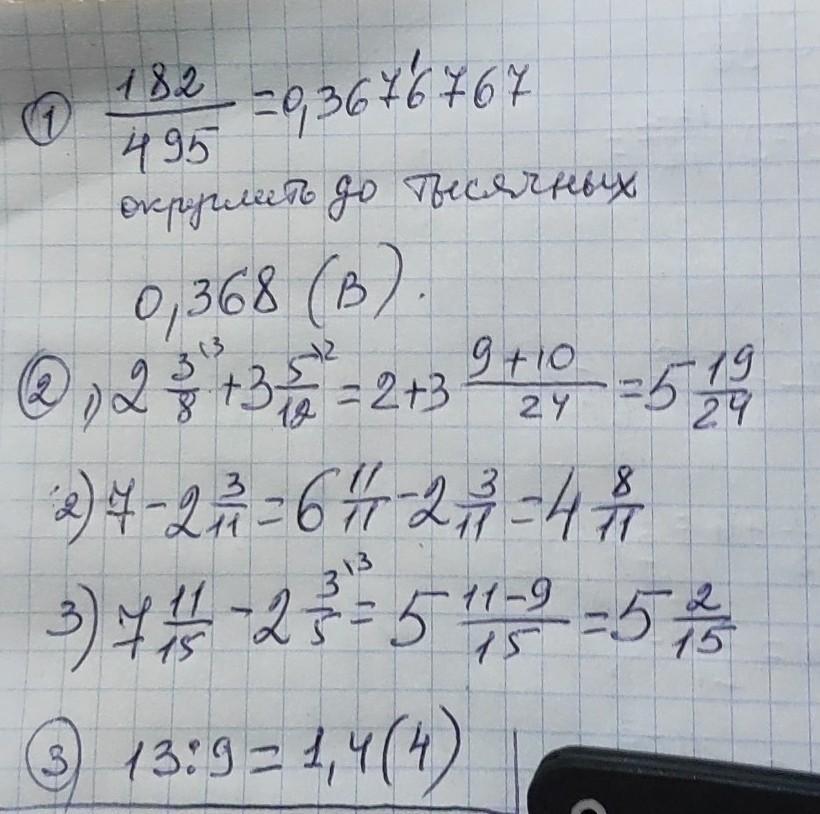 ① 182/495 = 0,3676767
округлить до тысячных
0,368 (В).
② 1) 2 3/8 \3 + 3 5/12 \2 = 2+3 (9+10)/24 = 5 19/24
2) 7 - 2 3/11 = 6 11/11 - 2 3/11 = 4 8/11
3) 7 11/15 - 2 3/5 \3 = 5 (11-9)/15 = 5 2/15
③ 13:9 = 1,4(4)